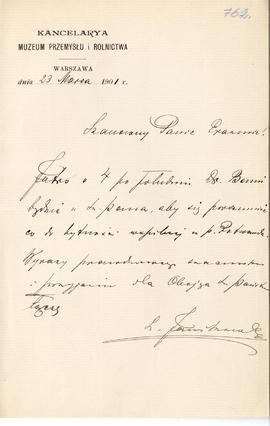 762.
KANCELARYA
MUZEUM PRZEMYSŁU i ROLNICTWA
WARSZAWA
dnia 23 Marca 1901 r.
Szanowny Panie Erazmie!
Jutro o 4 po południu Dr. Benni
będzie u Sz. Pana, aby się porozumieć
co do bytności wspólnej u p.
Wyrazy prawdziwego szacunku
i przyjaźni dla Obojga Sz. Państwa
łączę